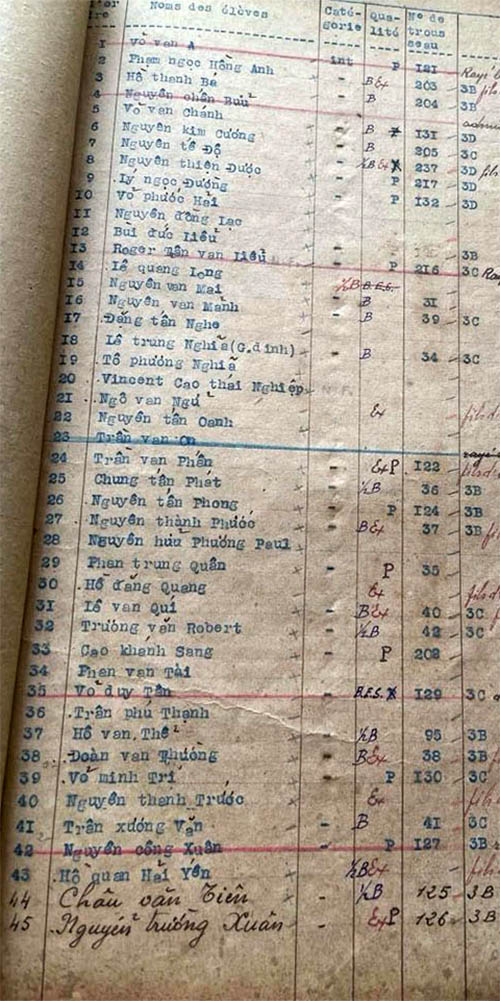 Noms des élèves Caté- gorie Qua- lité N° de trous seau
1 Võ van A
2 Pham ngoc Hồng Anh int P 121
3 Hồ thanh Bá - BEx 203 3B
4 Nguyễn chấn Bửu - B 204 3B
5 Võ van Chánh
6 Nguyễn kim Cương - B 131 3D
7 Nguyễn tế Độ - B 205 3C
8 Nguyễn thiện Dược - ½BEx 237 3D
9 Lý ngọc Đường - P 217 3D
10 Võ phước Hải - P 132 3D
11 Nguyễn đồng Lac
12 Bùi đức Liễu
13 Roger Tân van Liễu - 3B
14 Lê quang Long - P 216 3C
15 Nguyễn van Mai - ½B B.E.S.
16 Nguyễn van Mành - B 31
17 Đăng tấn Nghe - B 39 3C
18 Lê trung Nghĩa(G.đinh)
19 Tô phương Nghĩa - B 34 3C
20 Vincent Cao thái Nghiệp
21 Ngô van Ngữ
22 Nguyễn tấn Oanh Ex
23 Trần van On
24 Trần van Phấn - ExP 122
25 Chung tấn Phát - ½B 36 3B
26 Nguyễn tấn Phong - P 124 3B
27 Nguyễn thành Phước - BEx 37 3B
28 Nguyễn hữu Phương Paul
29 Phan trung Quân - P 35
30 Hồ đăng Quang Ex
31 Lê van Quí - BEx 40 3C
32 Trương văn Robert - ½B 42 3C
33 Cao khánh Sang P 202
34 Phan van Tài
35 Võ duy Tân - B.E.S. 129 3C
36 Trần phú Thạnh
37 Hồ van Thể - ½B 95 3B
38 Đoàn van Thường - BEx 38 3B
39 Võ minh Trí - P 130 3C
40 Nguyễn thanh Trước Ex
41 Trần xướng Văn - B 41 3C
42 Nguyễn công Xuân - P 127 3B
43 Hồ quan Hải Yến ½BEx
44 Châu văn Tiên - ½B 125 3B
45 Nguyễn trường Xuân - ExP 126 3B